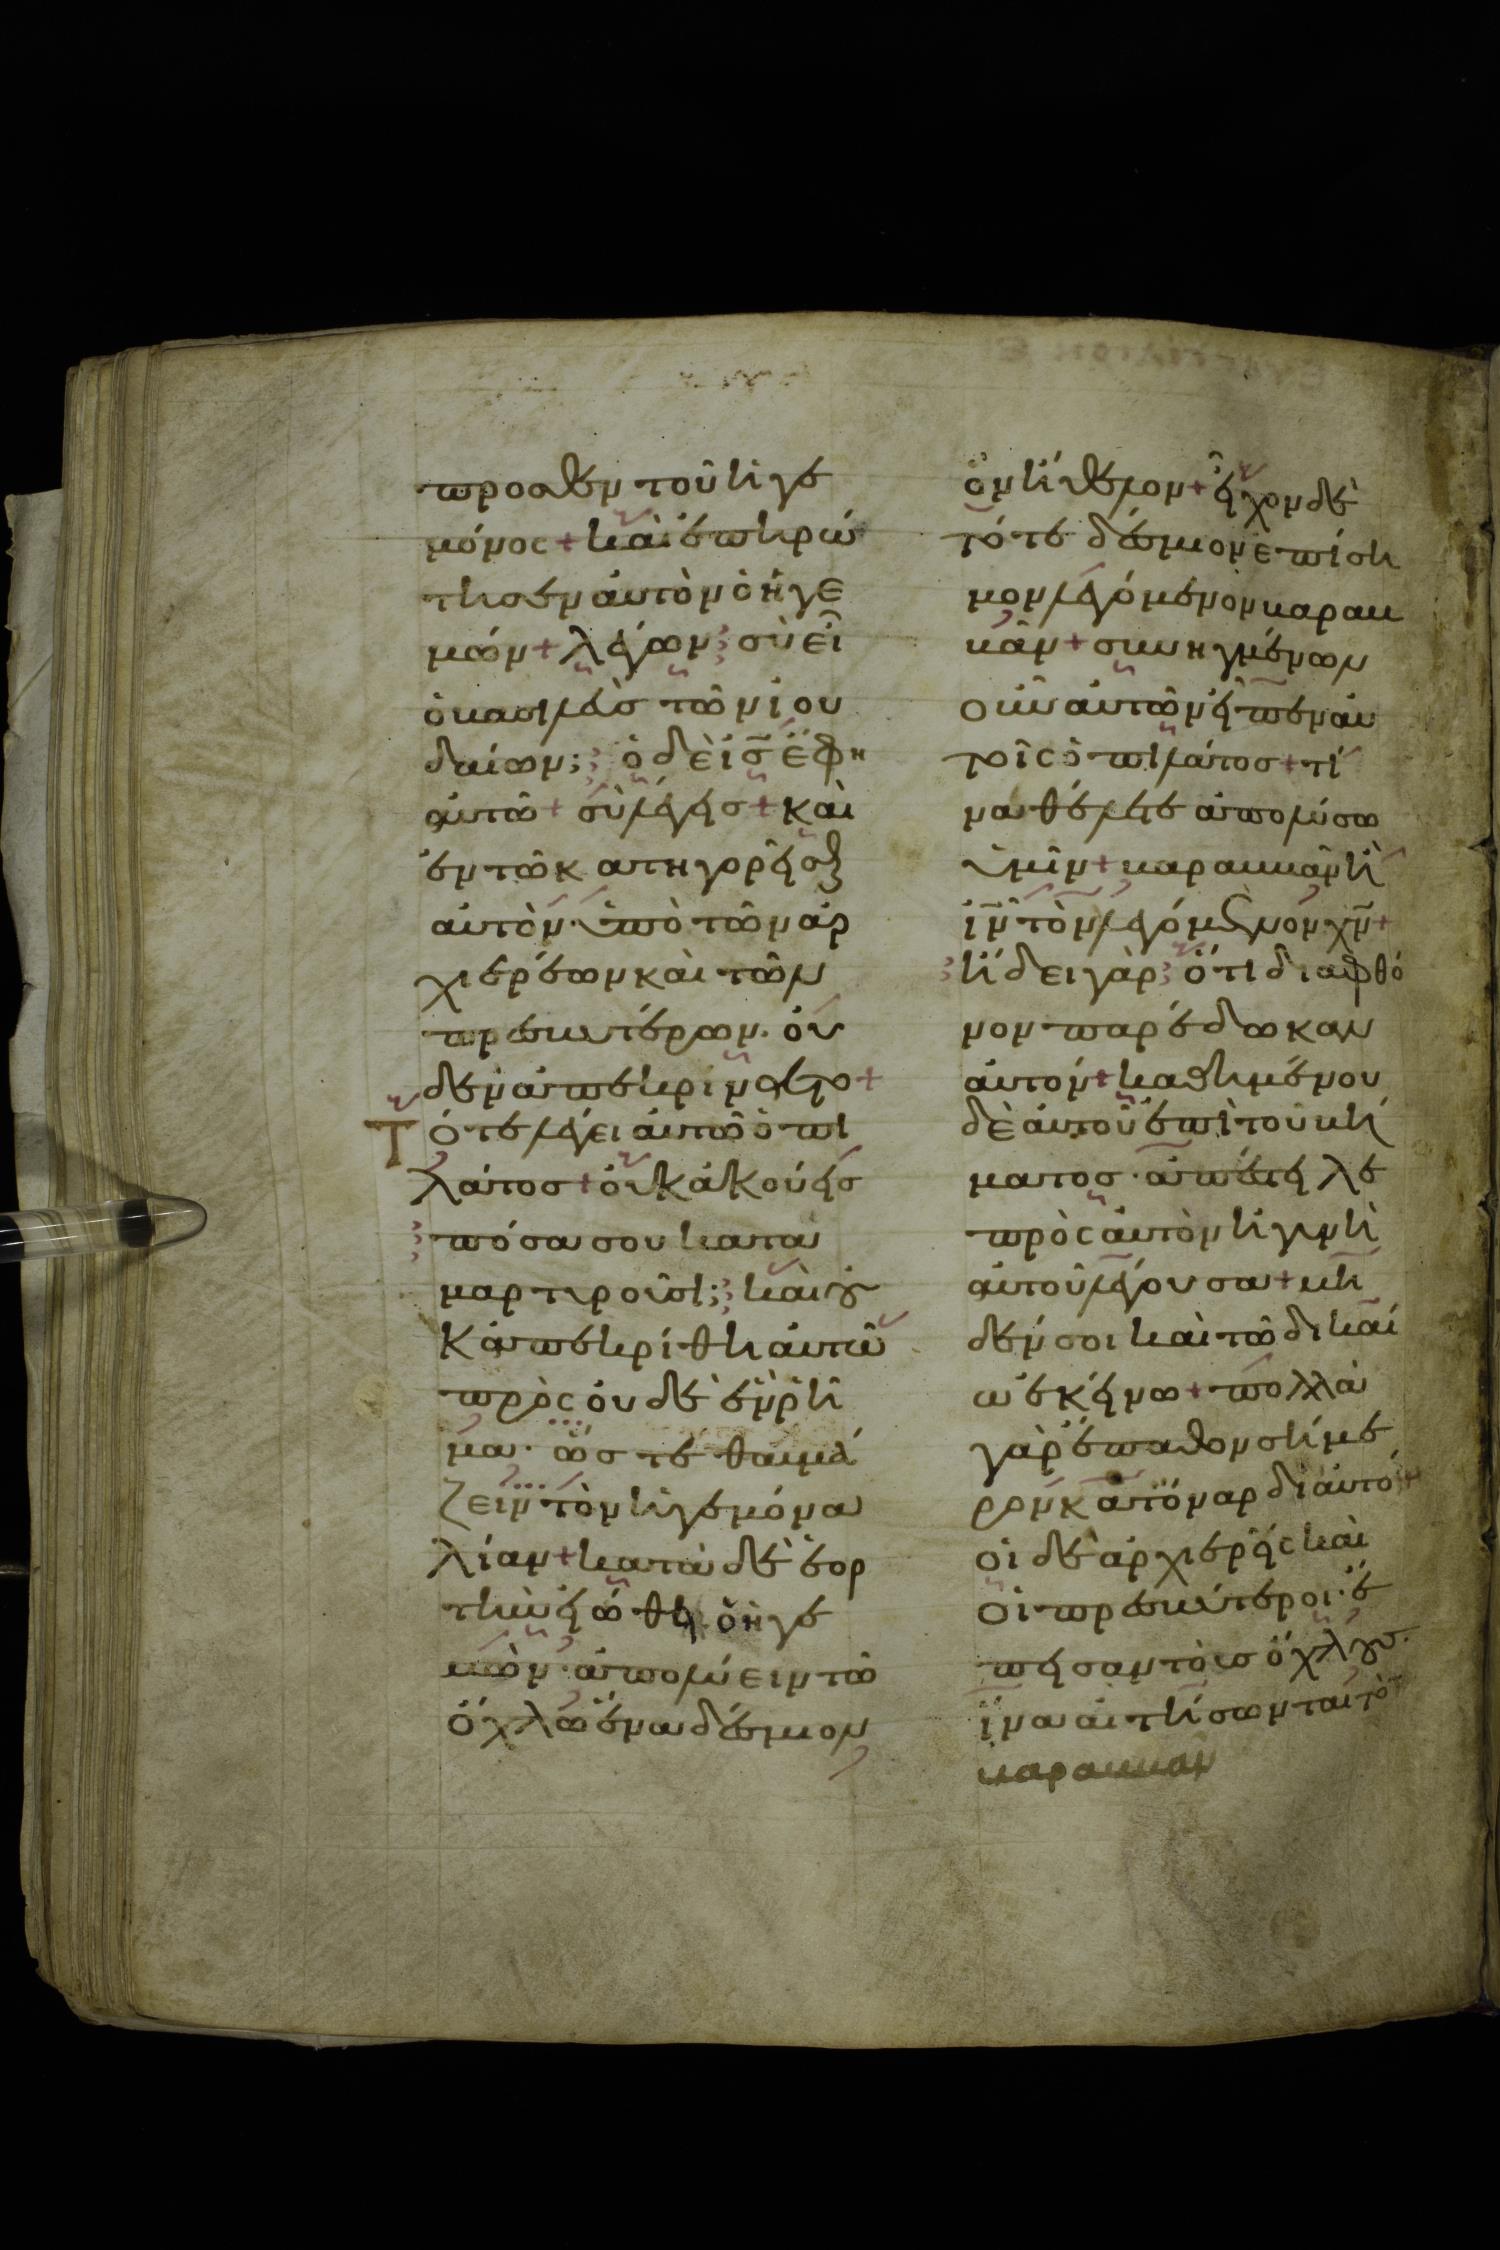 προσθεν τοῦ ἡγε
μόνος + καὶ ἐπηρώ
τησεν αὐτὸν ὁ ἡγε
μών + λέγων; σὺ εἶ
ὁ βασιλεὺς τῶν ἰου
δαίων; ὁ δὲ ἰ̅ς̅ ἔφη
αὐτῶ + σὺ λέγεις + καὶ
ἐν τῶ κατηγορεῖσθ
αὐτὸν ὑπὸ τῶν ἀρ
χιερέων καὶ τῶν
πρεσβυτέρων. οὐ
δὲν ἀπεκρίνατο +
Τότε λέγει αὐτῶ ὁ πι
λάτος + οὐκ ἀκούεις
πόσα σου κατα
μαρτυροῦσι; καὶ οὐ
κ ἀπεκρίθη αὐτῶ
πρὸς οὐδὲ ἓν ῥῆ
μα. ὥστε θαυμά
ζειν τὸν ἡγεμόνα
λίαν + κατὰ δὲ ἑορ
τὴν εἰώθη ὁ ἡγε
μὼν. ἀπολύειν τῶ
ὄχλω ἕνα δέσμιον
ὃν ἤθελον + εἶχον δὲ
τότε δέσμιον ἐπίση
μον λεγόμενον βαραβ
βᾶν + συνηγμένων
οὖν αὐτῶν εἶπεν αὐ
τοῖς ὁ πιλάτος + τί
να θέλετε ἀπολύσω
ὑμῖν + βαραββᾶν ἢ
ἰ̅ν̅ τὸν λεγόμενον χ̅ν̅ +
ἤδει γὰρ ὅτι διὰ φθό
νον παρέδωκαν
αὐτόν + καθημένου
δὲ αὐτοῦ ἐπὶ τοῦ βή
ματος. ἀπέστειλε
πρὸς αὐτὸν ἡ γυνὴ
αὐτοῦ λέγουσα + μη
δέν σοι καὶ τῶ δικαί
ω ἐκείνω + πολλὰ
γὰρ ἔπαθον σήμε
ρον κατ' ὄναρ δι αὐτόν +
οἱ δὲ ἀρχιερεῖς καὶ
οἱ πρεσβύτεροι. ἔ
πεισαν τοὺς ὄχλους.
ἵνα αἰτήσωνται τὸν
βαραββᾶν